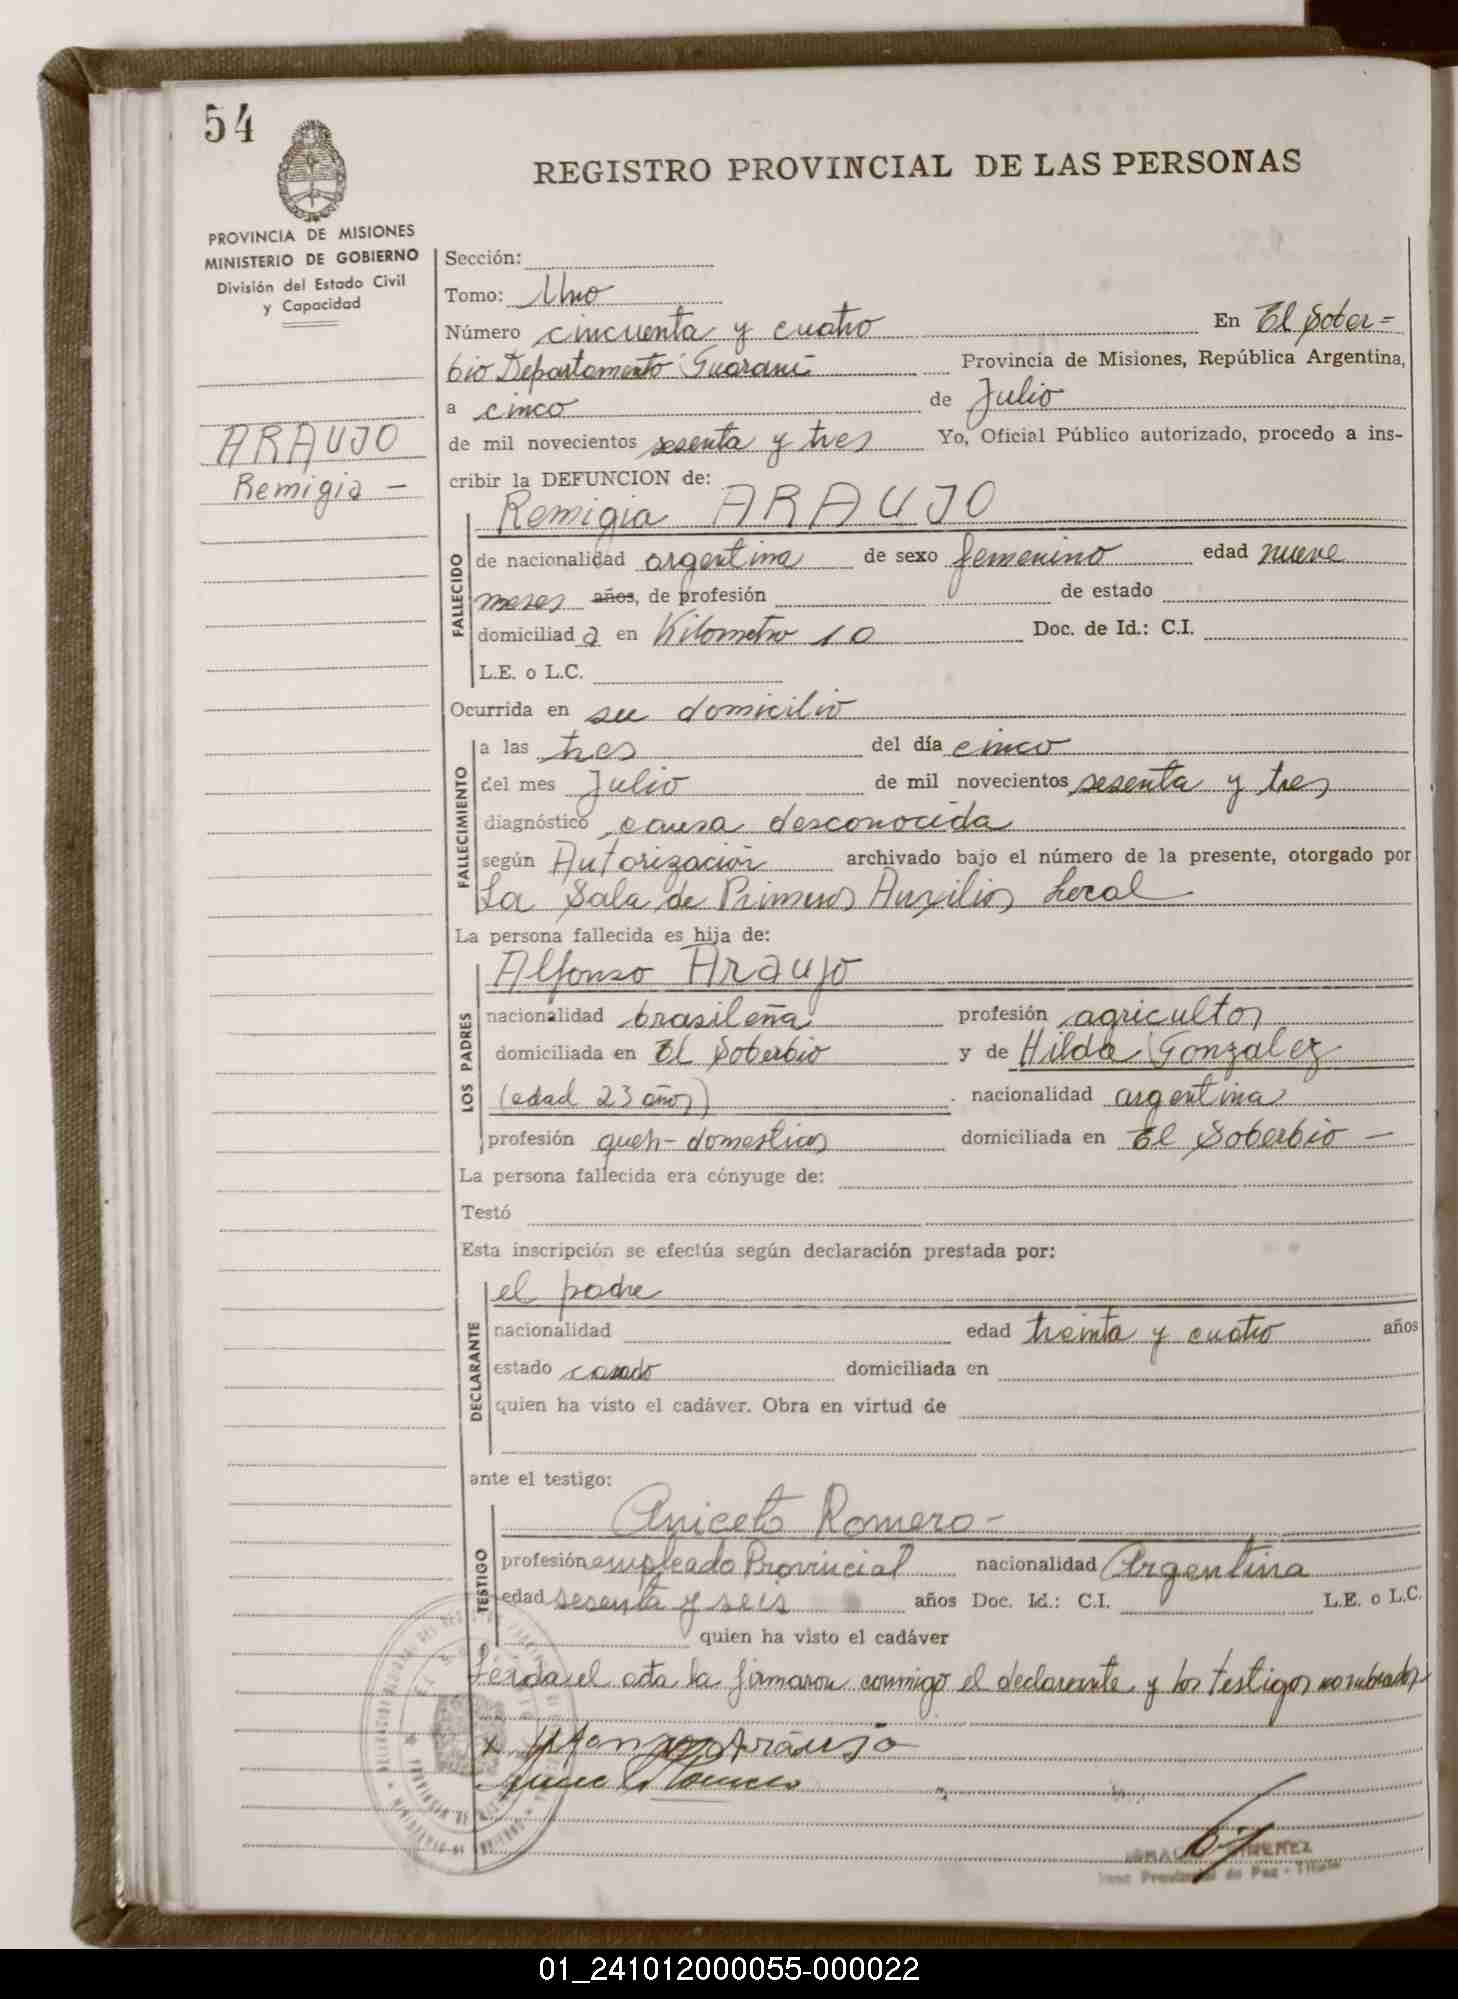 54
REGISTRO PROVINCIAL DE LAS PERSONAS
PROVINCIA DE MISIONES
MINISTERIO DE GOBIERNO
División del Estado Civil
y Capacidad
ARAUJO
Remigia -
Sección:
Tomo: Uno
Número cincuenta y cuatro En El Sober=
bio Departamento Guaraní Provincia de Misiones, República Argentina,
a cinco de Julio
de mil novecientos sesenta y tres Yo, Oficial Público autorizado, procedo a ins-
cribir la DEFUNCION de:
Remigia ARAUJO
FALLECIDO
de nacionalidad argentina de sexo femenino edad nueve
meses años, de profesión de estado
domiciliad a en Kilometro 10 Doc. de Id.: C.I.
L.E. o L.C.
Ocurrida en su domicilio
FALLECIMIENTO
a las tres del día cinco
del mes Julio de mil novecientos sesenta y tres
diagnóstico causa desconocida
según Autorización archivado bajo el número de la presente, otorgado por
La Sala de Primeros Auxilios Local
La persona fallecida es hija de:
LOS PADRES
Alfonso Araujo
nacionalidad brasileña profesión agricultor
domiciliada en El Soberbio y de Hilda Gonzalez
(edad 23 años) . nacionalidad argentina
profesión queh-domesticos domiciliada en El Soberbio -
La persona fallecida era cónyuge de:
Testó
Esta inscripción se efectúa según declaración prestada por:
DECLARANTE
el padre
nacionalidad edad treinta y cuatro años
estado casado domiciliada en
quien ha visto el cadáver. Obra en virtud de
ante el testigo:
TESTIGO
Aniceto Romero-
profesión empleado Provincial nacionalidad Argentina
edad sesenta y seis años Doc. Id.: C.I. L.E. o L.C.
quien ha visto el cadáver
Leida el acta la firmaron conmigo el declarante y los testigos nombrados
x Alfonso Araujo
Romero
Paz - Titular
01_241012000055-000022